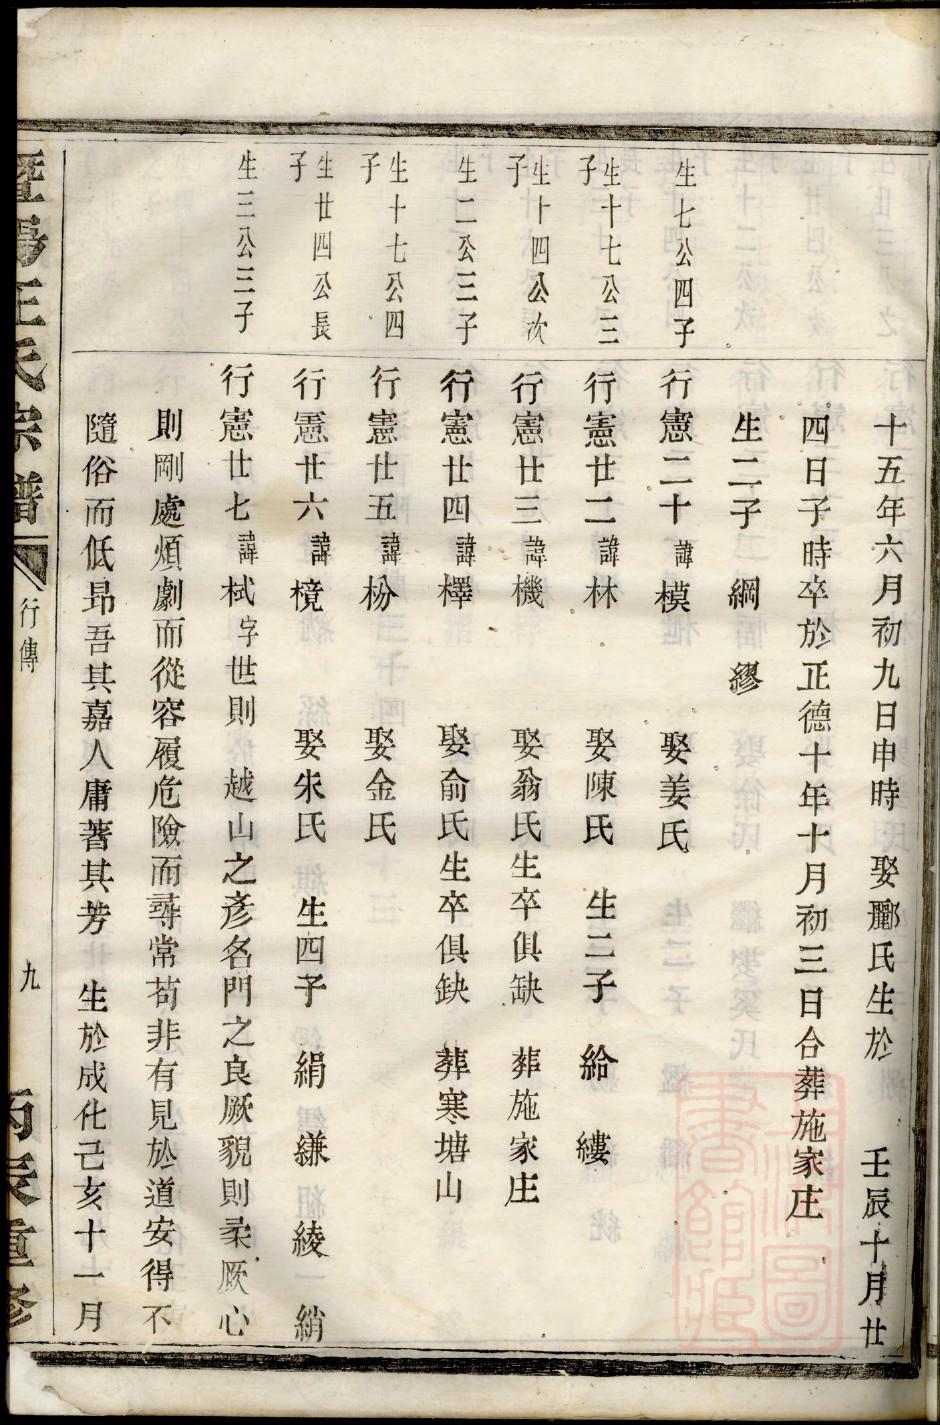 十五年六月初九日申時　娶酈氏生於　壬辰十月廿
四日子時卒於正德十年十月初三日合葬施家庄
生二子　綱　繆
生七公四子　行憲二十諱模　娶姜氏
生十七公三子　行憲廿二諱林　娶陳氏　生二子　給　縷
生十四公次子　行憲廿三諱機　娶翁氏生卒俱缺　葬施家庄
生二公三子　行憲廿四諱檡　娶俞氏生卒俱缺　葬寒塘山
生十七公四子　行憲廿五諱枌　娶金氏
生廿四公長子　行憲廿六諱樈　娶朱氏　生四子　絹　縑　綾　綃
生三公三子　行憲廿七諱栻字世則　越山之彥名門之良厥貌則柔厥心
則剛處煩劇而從容履危險而尋常苟非有見於道安得不
隨俗而低昂吾其嘉人庸著其芳　生於成化己亥十一月
暨陽王氏宗譜　行傳　九　丙辰重修